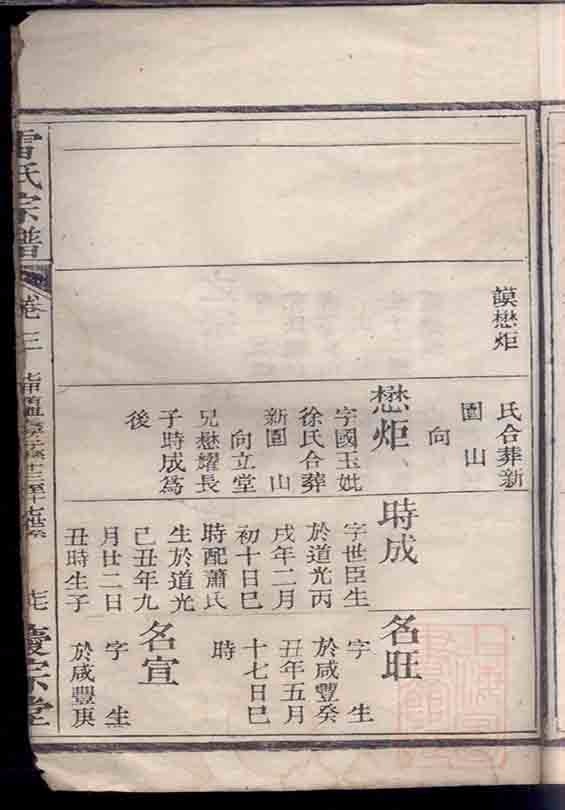 謨懋炬
氏合葬新
園山
向
懋炬
字國玉妣
徐氏合葬
新園山
向立堂
兄懋耀長
子時成爲
後
時成
字世臣生
於道光丙
戌年二月
初十日巳
時配蕭氏
生於道光
己丑年九
月廿二日
丑時生子
名旺
字 生
於咸豐癸
丑年五月
十七日巳
時
名宣
字 生
於咸豐庚
雷氏宗譜
卷三
慶宗堂